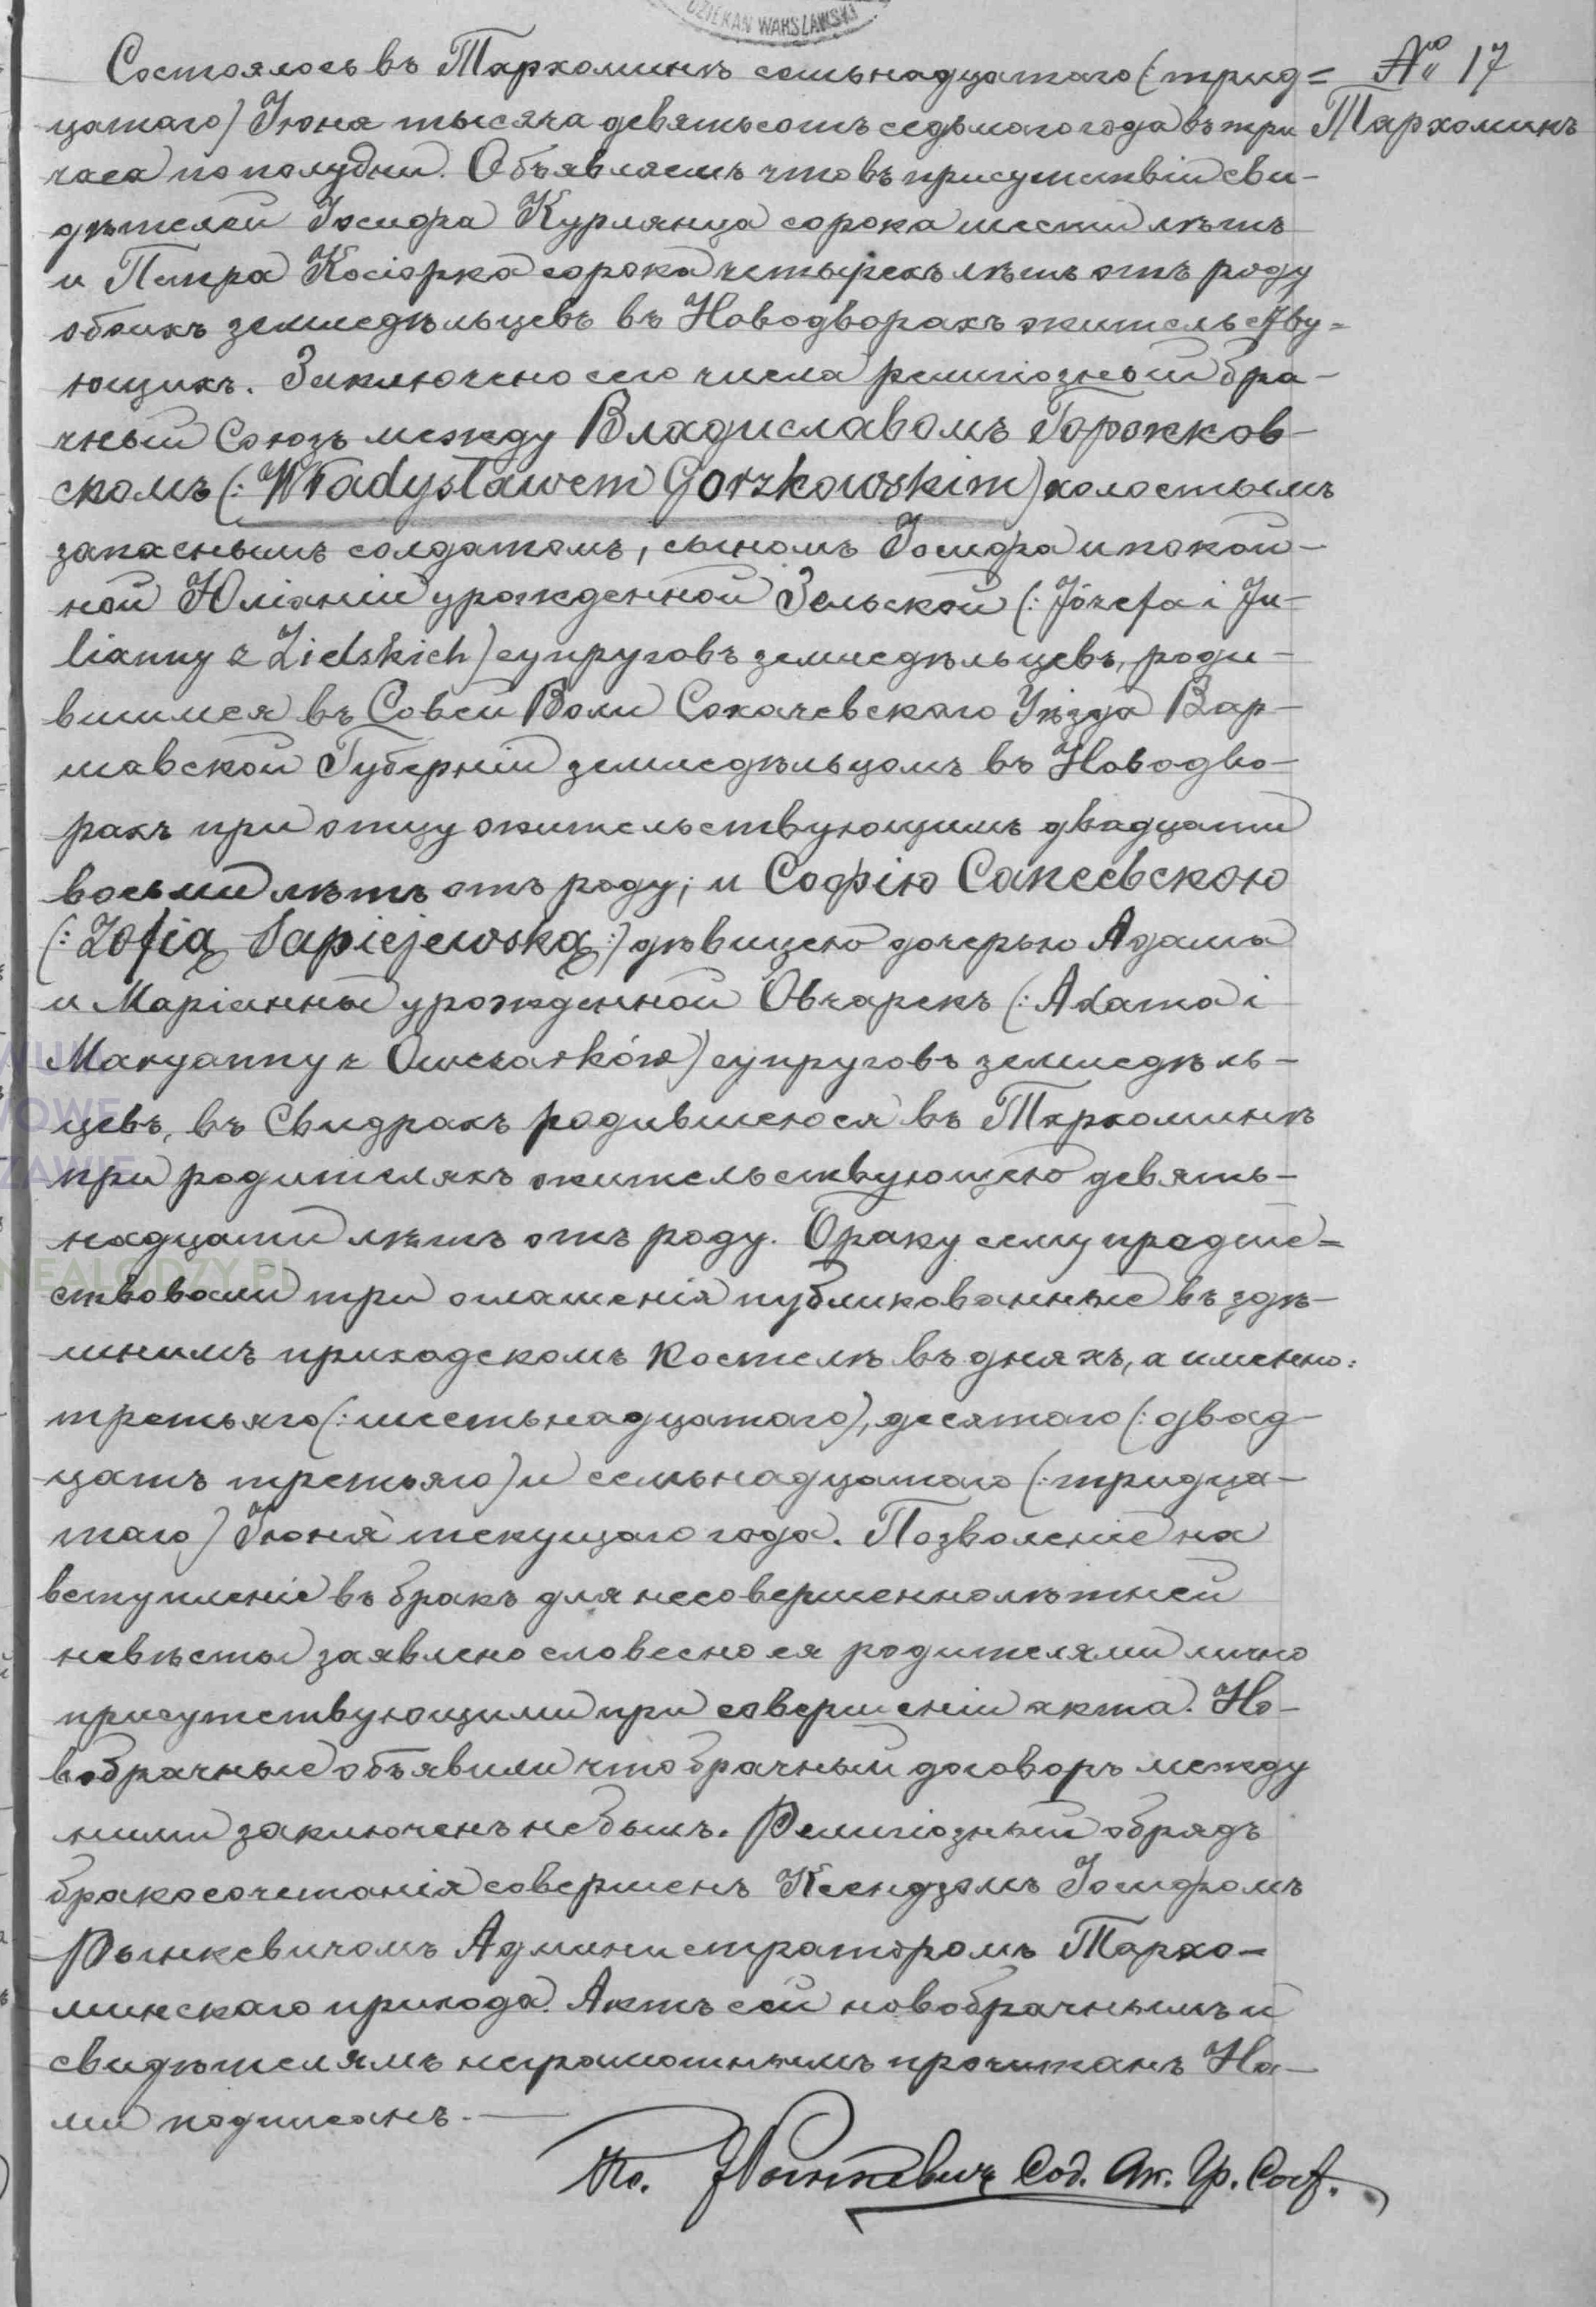 DZIEKAN WARSZAWSKI
Состоялось въ Тархоминѣ семьнадцатаго (трид= № 17
цатаго) Іюна тысяча девятьсотъ седьмого года въ три Тархоминъ
часа по полудни. Объявляемъ что въ присутствіи сви-
дѣтелей Іосифа Курлянца сорока шести лѣтъ
и Петра Косіорка сорока четырехъ лѣтъ отъ роду
обоихъ земледѣльцевъ въ Новодворахъ жительству=
ющихъ. Заключено сего числа религіозный бра-
чный союзъ между Владиславомъ Горожков-
скомъ (: Władysławem Gorzkowskim) холостымъ
запаснымъ солдатомъ, сыномъ Іосифа и покой-
ной Юліанны урожденной Зельской (: Józefa i Ju-
lianny z Zielskich) супруговъ земледѣльцевъ, роди-
вшимся въ Совей Воли Сохачевскаго Уѣзда Вар-
шавской Губерніи земледѣльцомъ въ Новодво-
рахъ при отцу жительствующимъ двадцати
восьми лѣтъ отъ роду; и Софію Сапеевскою
(: Zofią Sapiejewską :) дѣвицею дочерью Адама
и Маріанны урожденной Овчарекъ (: Adama i
Maryanny z Owczarków) супруговъ земледѣль-
цевъ, въ Свидрахъ родившеюся въ Тархоминѣ
при родителяхъ жительствующею девять-
надцати лѣтъ отъ роду. Браку сему предше=
ствовали три оглашенія публикованные въ здѣ-
шнимъ приходскомъ костелѣ въ дняхъ, а именно:
третьяго (: шестьнадцатаго), десятаго (: двад-
цать третьяго) и семьнадцатаго (: тридца-
таго) Іюня текущаго года. Позволеніе на
вступленіе въ бракъ для несовершеннолѣтней
невѣсты заявлено словесно ея родителями лично
присутствующими при совершеніи акта. Но-
вобрачные объявили что брачный договоръ между
ними заключенъ не былъ. Религіозный обрядъ
бракосочетанія совершенъ Ксендзомъ Іосифомъ
Рынкевичомъ Администраторомъ Тархо-
минскаго прихода. Актъ сей новобрачнымъ и
свидѣтелямъ неграмотнымъ прочитанъ На-
ми подписанъ.
Кс. І Рынкевичъ Сод. Ак. Гр. Сост.